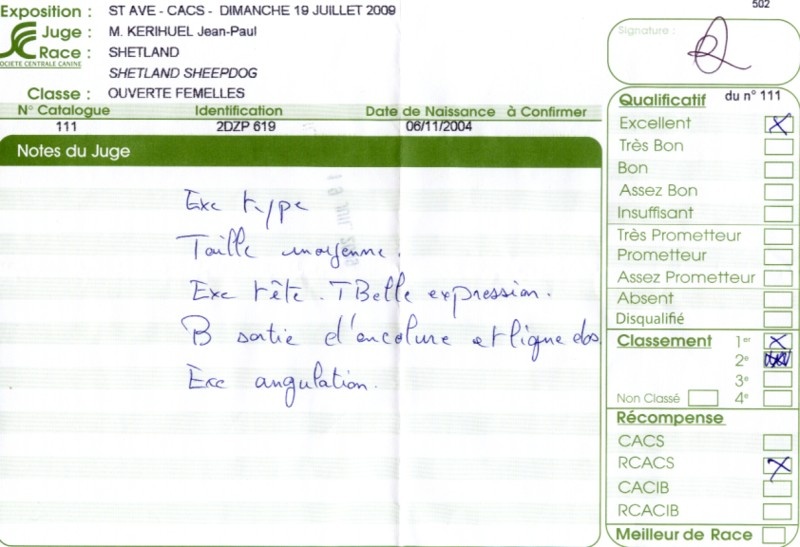 502
Exposition : ST AVE - CACS - DIMANCHE 19 JUILLET 2009
Juge : M. KERIHUEL Jean-Paul
Race : SHETLAND
SOCIETE CENTRALE CANINE
SHETLAND SHEEPDOG
Classe : OUVERTE FEMELLES
N° Catalogue Identification Date de Naissance à Confirmer
111 2DZP 619 06/11/2004
Notes du Juge
Exc type
Taille moyenne.
Exc tête. TBelle expression.
B sortie d'encolure et ligne dos
Exc angulation.
Signature :
Qualificatif du n° 111
Excellent X
Très Bon
Bon
Assez Bon
Insuffisant
Très Prometteur
Prometteur
Assez Prometteur
Absent
Disqualifié
Classement 1er X
2e
3e
Non Classé 4e
Récompense
CACS
RCACS X
CACIB
RCACIB
Meilleur de Race